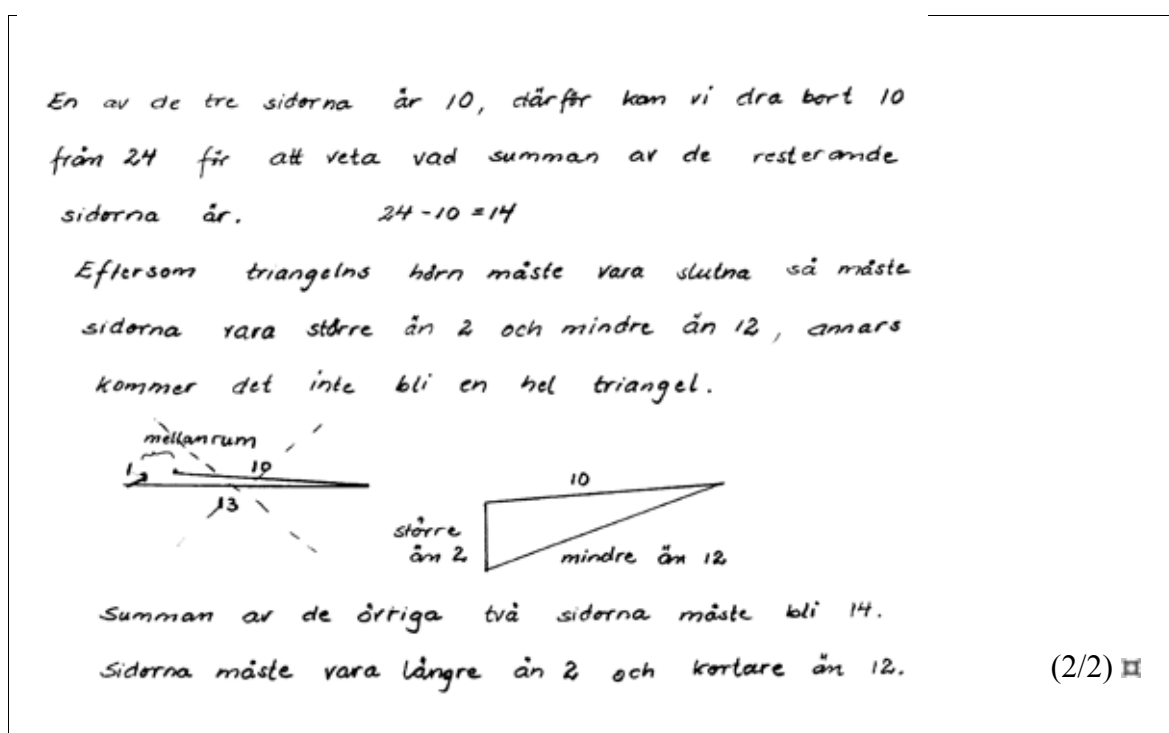 En av de tre sidorna är 10, därför kan vi dra bort 10
från 24 för att veta vad summan av de resterande
sidorna är. 24 - 10 = 14
Eftersom triangelns hörn måste vara slutna så måste
sidorna vara större än 2 och mindre än 12, annars
kommer det inte bli en hel triangel.
mellanrum
1 10
13
10
större
än 2 mindre än 12
Summan av de övriga två sidorna måste bli 14.
Sidorna måste vara längre än 2 och kortare än 12. (2/2) ¤